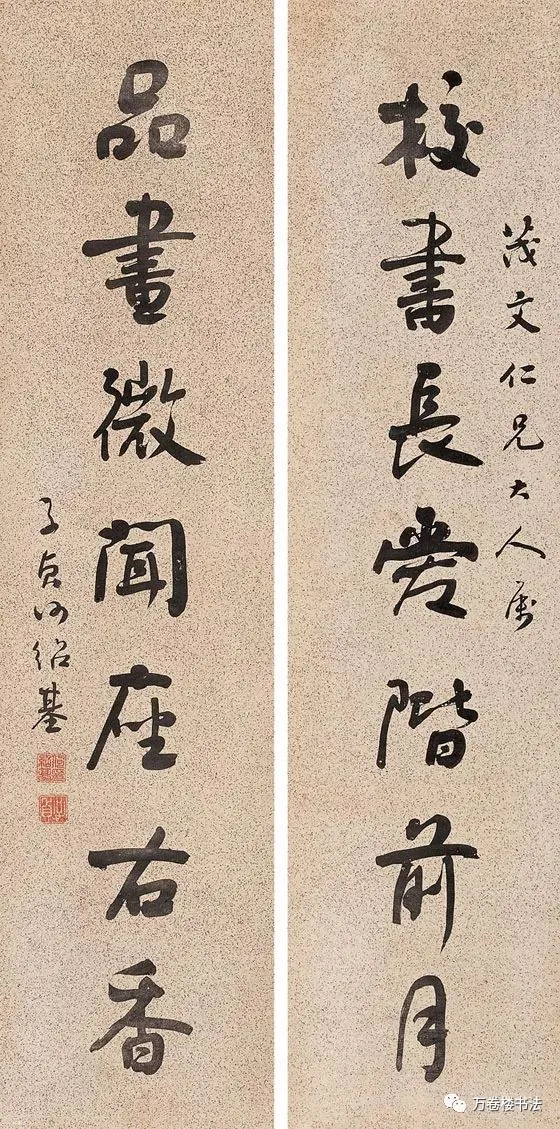 茂文仁兄大人属
校書長愛階前月
品畫微聞座右香
子貞何紹基
万卷楼书法